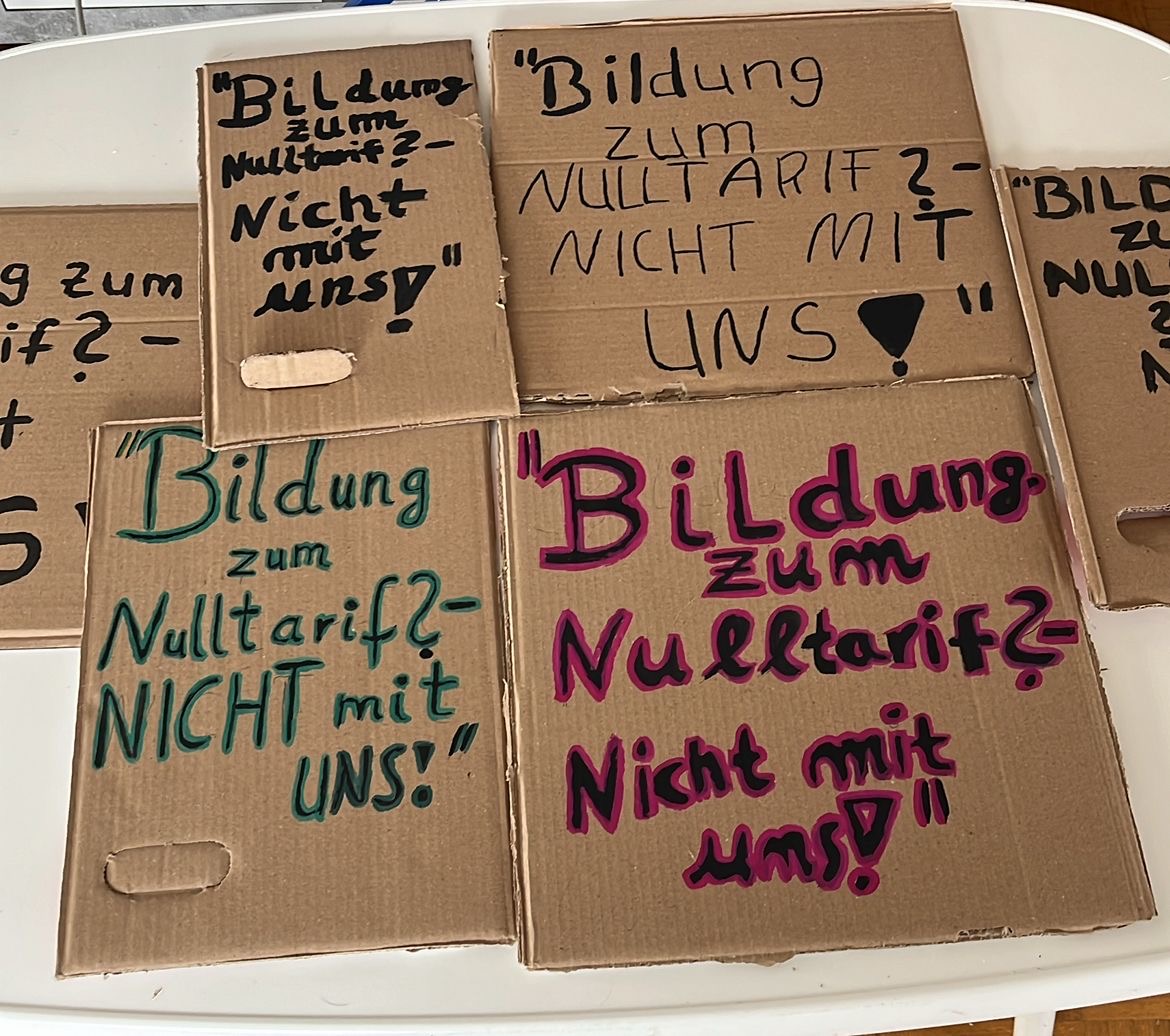 "Bildung
zum
Nulltarif?-
Nicht
mit
uns!"
"Bildung
zum
NULLTARIF?-
NICHT MIT
UNS!"
g zum
if?-
"BILD
ZU
NUL
?
N
"Bildung
zum
Nulltarif?-
NICHT mit
UNS!"
"Bildung
zum
Nulltarif?-
Nicht mit
uns!"